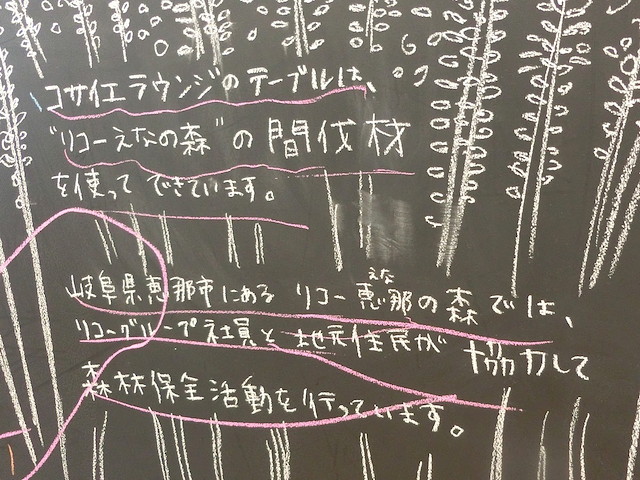 コサイエラウンジのテーブルは、
"リコーえなの森"の間伐材
を使ってできています。
岐阜県恵那市にあるリコー恵那の森では、
えな
リコーグループ社員と地元住民が協力して
森林保全活動を行っています。